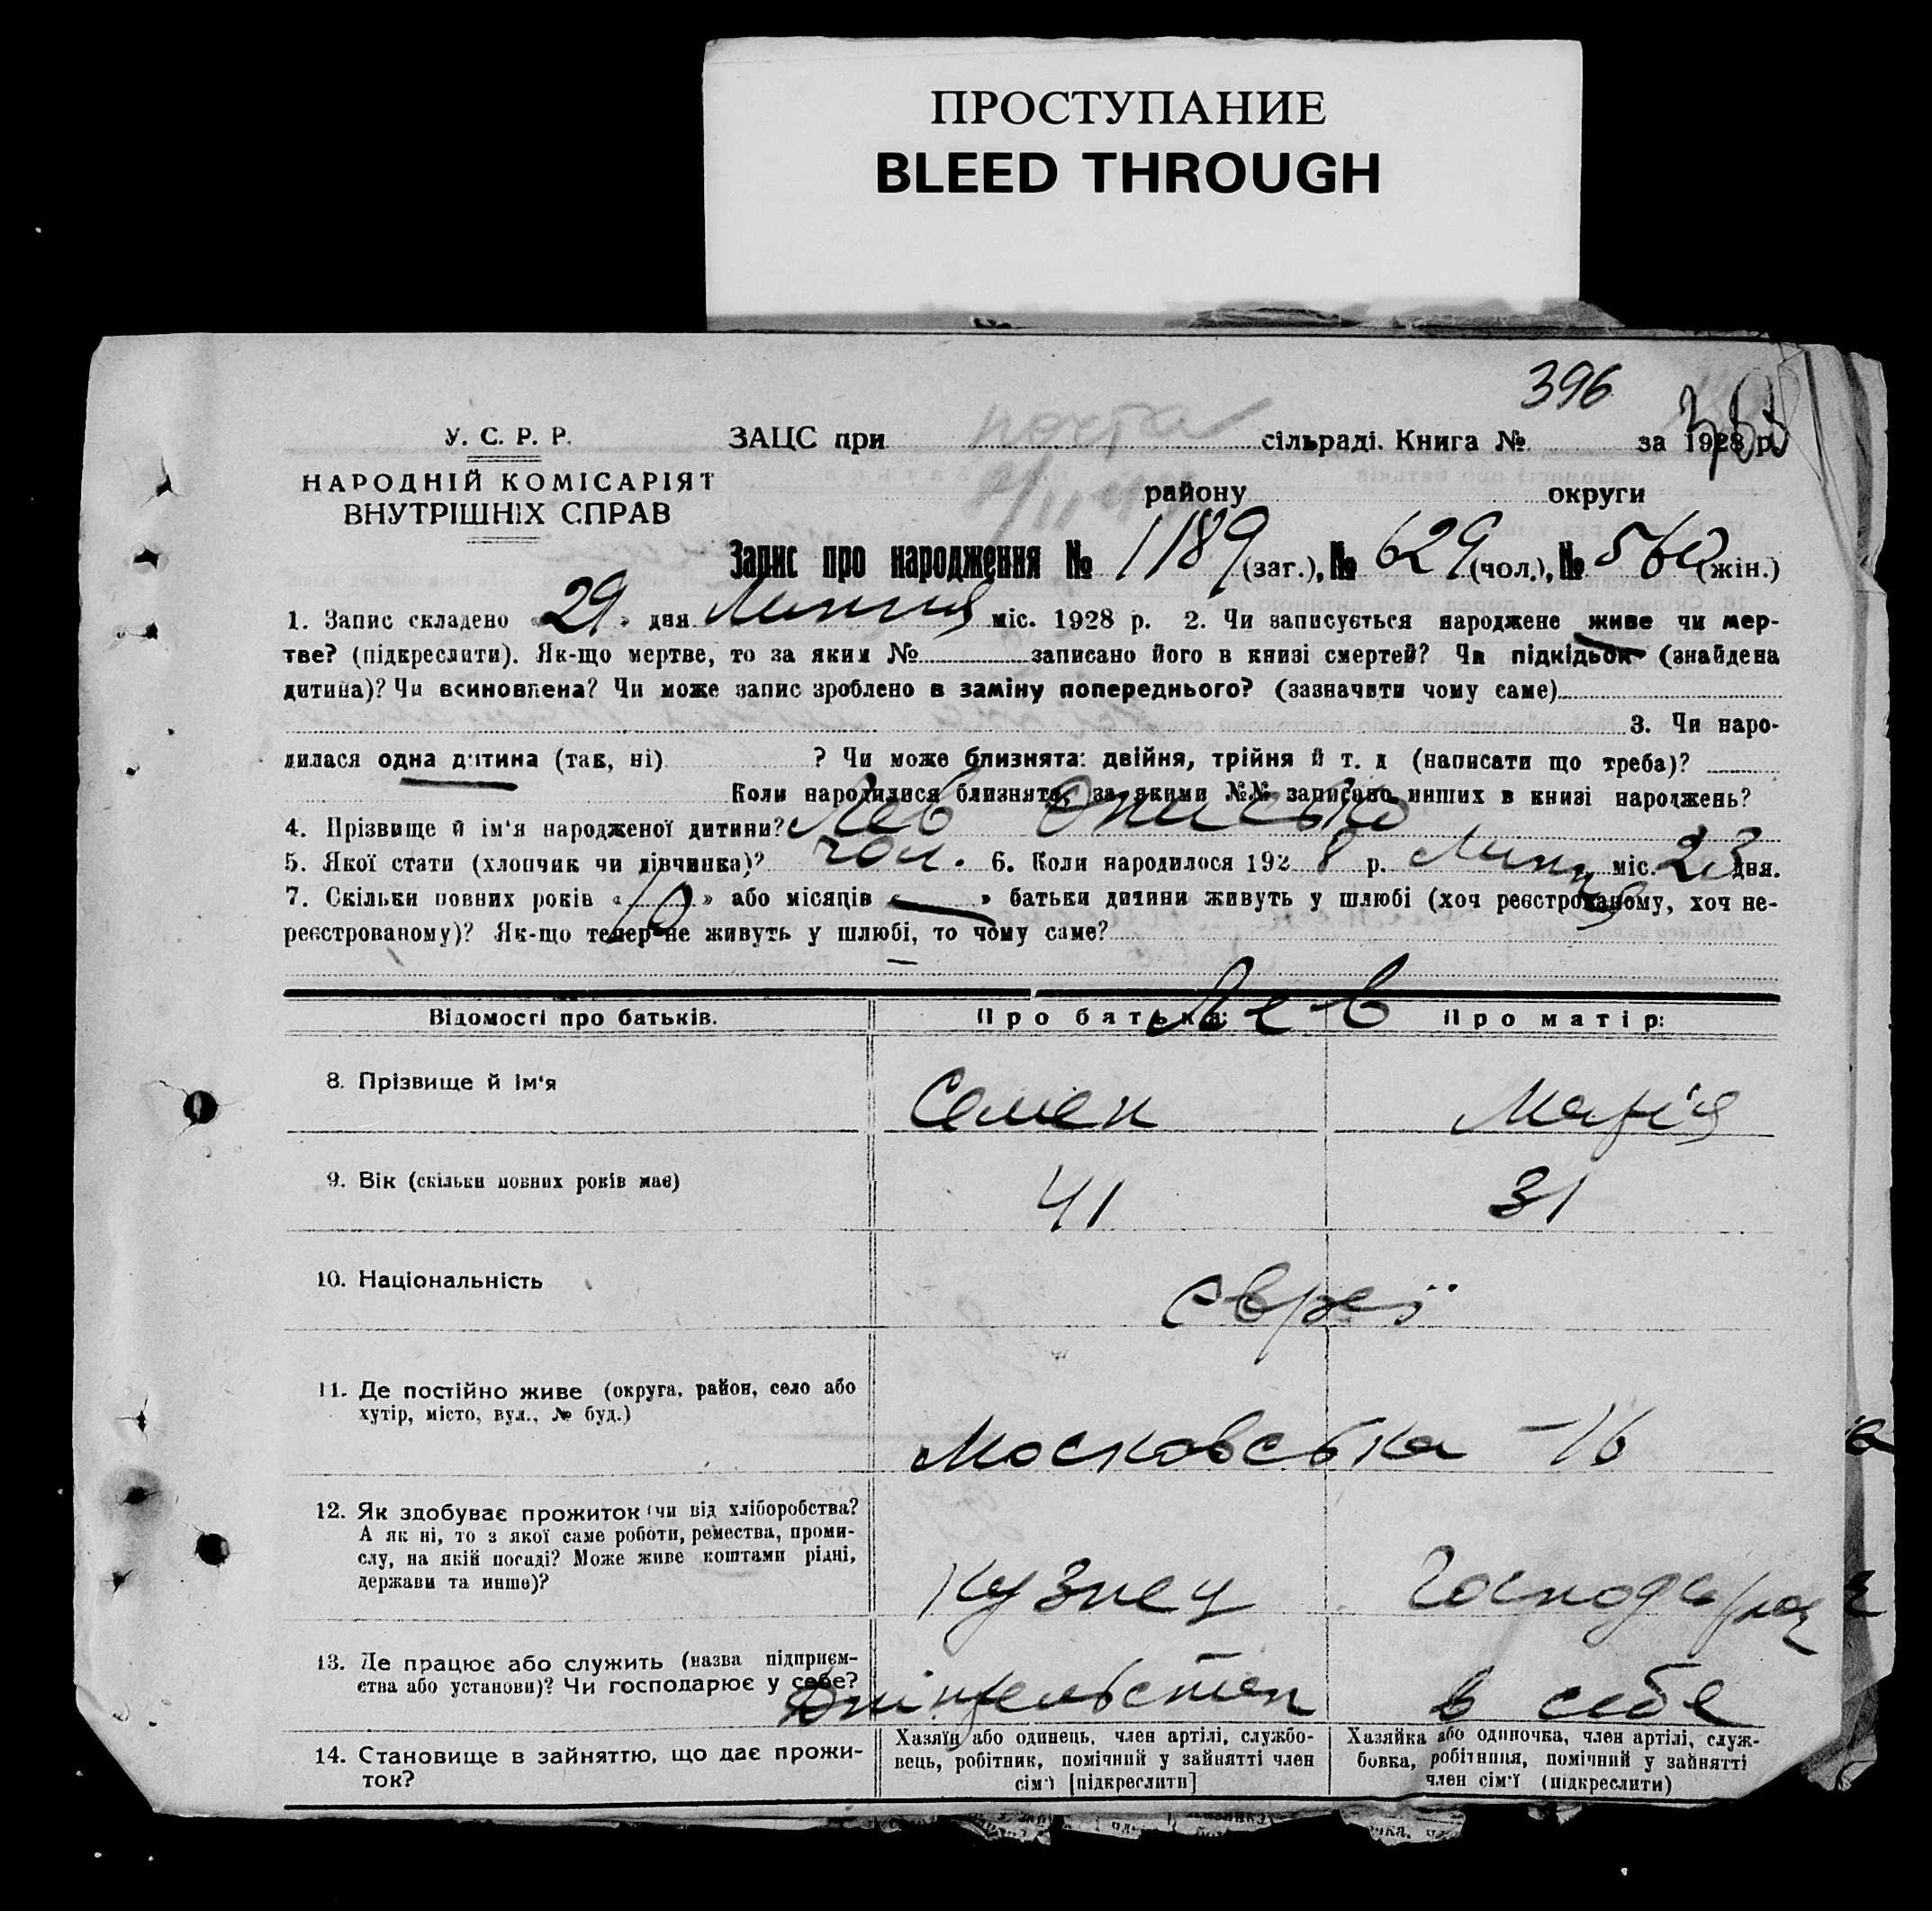 ПРОСТУПАНИЕ
BLEED THROUGH
396
У. С. Р. Р.
НАРОДНІЙ КОМІСАРІЯТ
ВНУТРІШНІХ СПРАВ
ЗАЦС при почта сільраді. Книга № за 1928 р.
району округи
Запис про народження № 1189 (заг.), № 629 (чол.), № 560 (жін.)
1. Запис складено «29» дня Липня міс. 1928 р. 2. Чи записується народжене живе чи мер-
тве? (підкреслити). Як-що мертве, то за яким № записано його в книзі смертей? Чи підкідьок (знайдена
дитина)? Чи всиновлена? Чи може запис зроблено в заміну попереднього? (зазначити чому саме)
3. Чи наро-
дилася одна дитина (так, ні) ? Чи може близнята: двійня, трійня й т. д (написати що треба)?
Коли народилися близнята, за якими №№ записано инших в книзі народжень?
4. Прізвище й ім'я народженої дитини? Лев
5. Якої стати (хлопчик чи дівчинка)? чол. 6. Коли народилося 1928 р. Липня міс. 23 дня.
7. Скільки повних років «10» або місяців «—» батьки дитини живуть у шлюбі (хоч реєстрованому, хоч не-
реєстрованому)? Як-що тепер не живуть у шлюбі, то чому саме?
Лев
Відомості про батьків. Про батька: Про матір:
8. Прізвище й ім'я Семен Марія
9. Вік (скільки повних років має) 41 31
10. Національність євреї
11. Де постійно живе (округа, район, село або
хутір, місто, вул., № буд.)
Московська - 16
12. Як здобуває прожиток (чи від хліборобства?
А як ні, то з якої саме роботи, ремества, проми-
слу, на якій посаді? Може живе коштами рідні,
держави та инше)?
Кузнец
13. Де працює або служить (назва підприєм-
ства або установи)? Чи господарює у себе?
в себе
14. Становище в зайняттю, що дає прожи-
ток?
Хазяїн або одинець, член артілі, службо-
вець, робітник, помічний у зайнятті член
сім'ї [підкреслити]
Хазяйка або одиночка, член артілі, служ-
бовка, робітниця, помічний у зайнятті
член сім'ї (підкреслити)